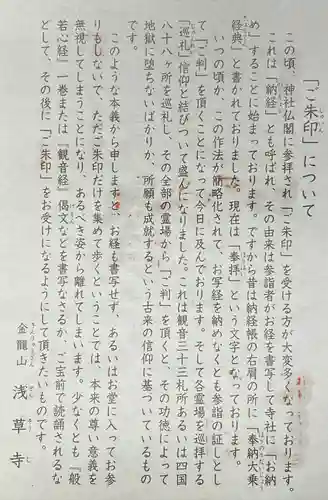 「ご朱印」について
この頃、神社仏閣に参拝され「ご朱印」を受ける方が大変多くなっております。
これは「納経」とも呼ばれ、その由来は参詣者がお経を書写して寺社に「お納
め」することに始まっております。ですから昔は納経帳の右肩の所に「奉納大乗
経典」と書かれておりました。現在は「奉拝」という文字となっております。
いつの頃か、この作法が簡略化されて、お写経を納めなくとも参詣の証しとし
て「ご判」を頂くことになって今日に及んでおります。そして各霊場を巡拝する
「巡礼」信仰と結びついて盛んになりました。これは観音三十三札所あるいは四国
八十八ヶ所を巡礼し、その全部の霊場から「ご判」を頂くと、その功徳によって
地獄に堕ちないばかりか、所願も成就するという古来の信仰に基づいているもの
このような本義から申しますと、お経も書写せず、あるいはお堂に入ってお参
りもしないで、ただご朱印だけを集めて歩くということでは、本来の尊い意義を
無視してしまうことになり、あるべき姿から離れてしまいます。少なくとも『般
若心経』一巻または『観音経』偈文などを書写なさるか、ご宝前で読誦されるな
どして、その後に「ご朱印」をお受けになるようにして頂きたいものです。
金龍山 浅草寺